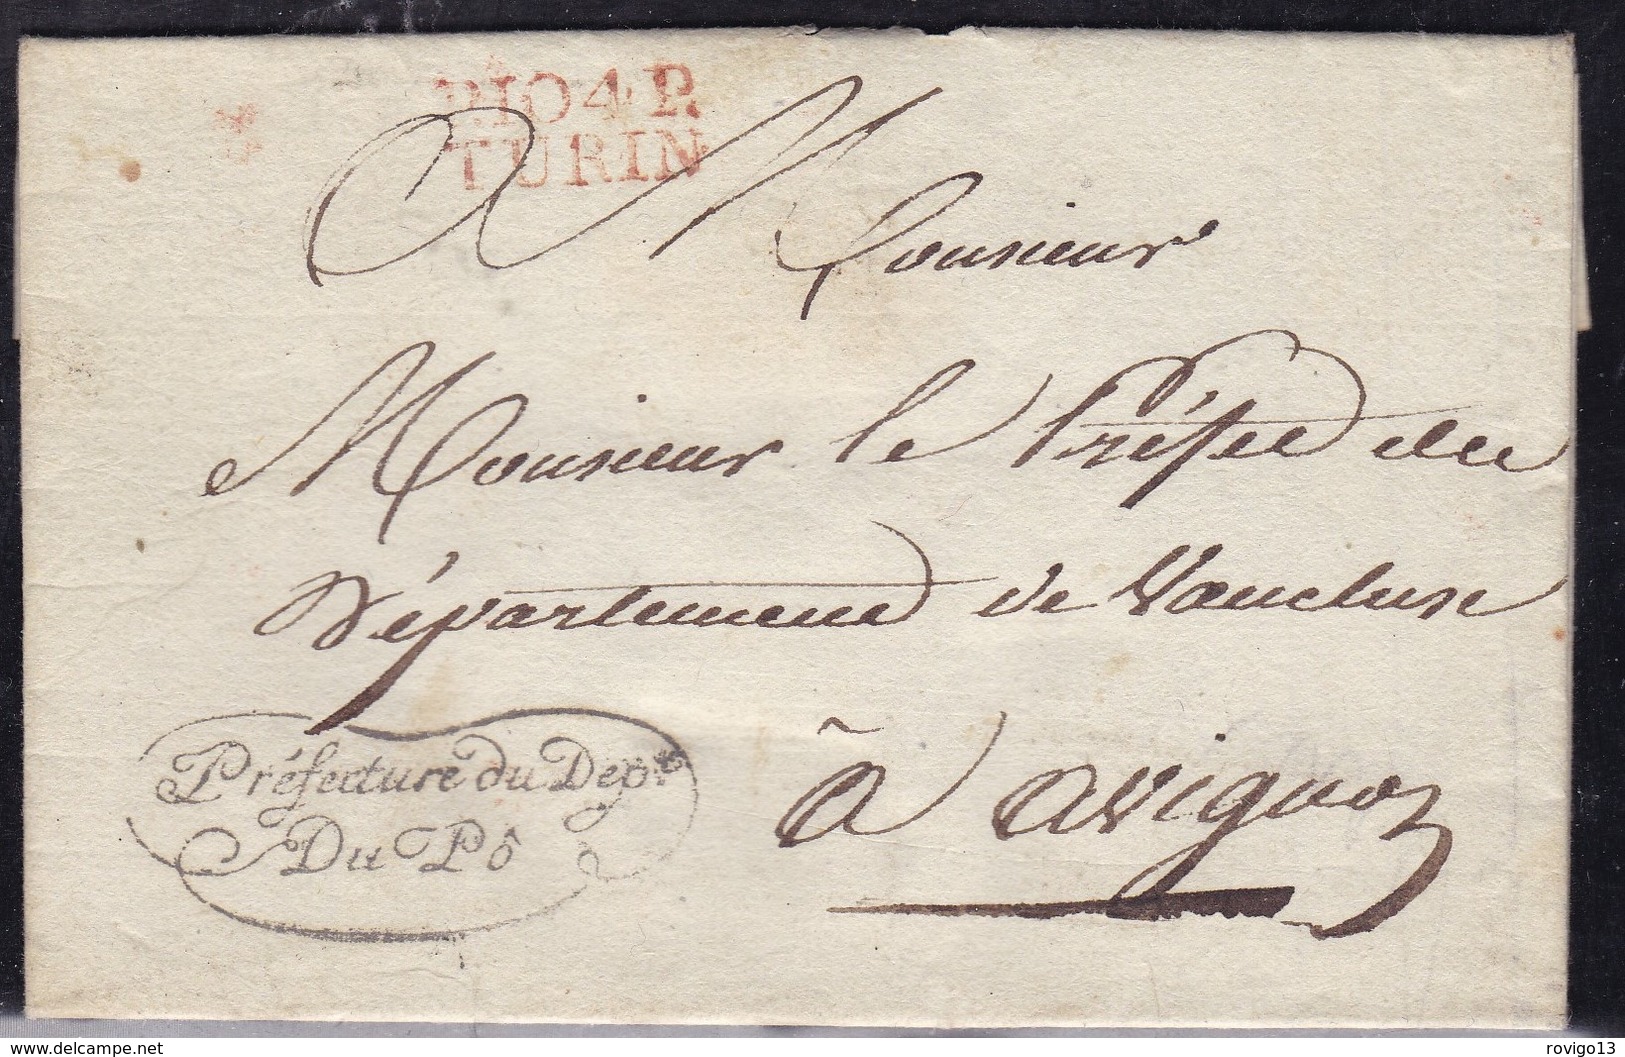 P.104.P.
TURIN
A Monsieur
Monsieur le Préfet du
Département de Vaucluse
à Avignon
Préfecture du Dep.t
Du Pô
© www.delcampe.net
rovigo13